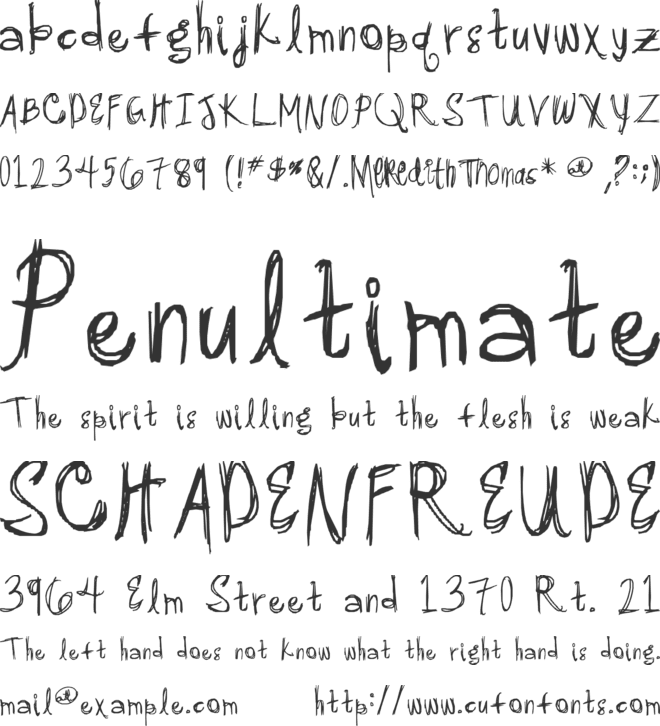 abcdefghijklmnopqrstuvwxyz
ABCDEFGHIJKLMNOPQRSTUVWXYZ
0123456789 (!#$%&/.MeredithThomas* @ ,?:;)
Penultimate
The spirit is willing but the flesh is weak
SCHADENFREUDE
3964 Elm Street and 1370 Rt. 21
The left hand does not know what the right hand is doing.
mail@example.com http://www.cufonfonts.com